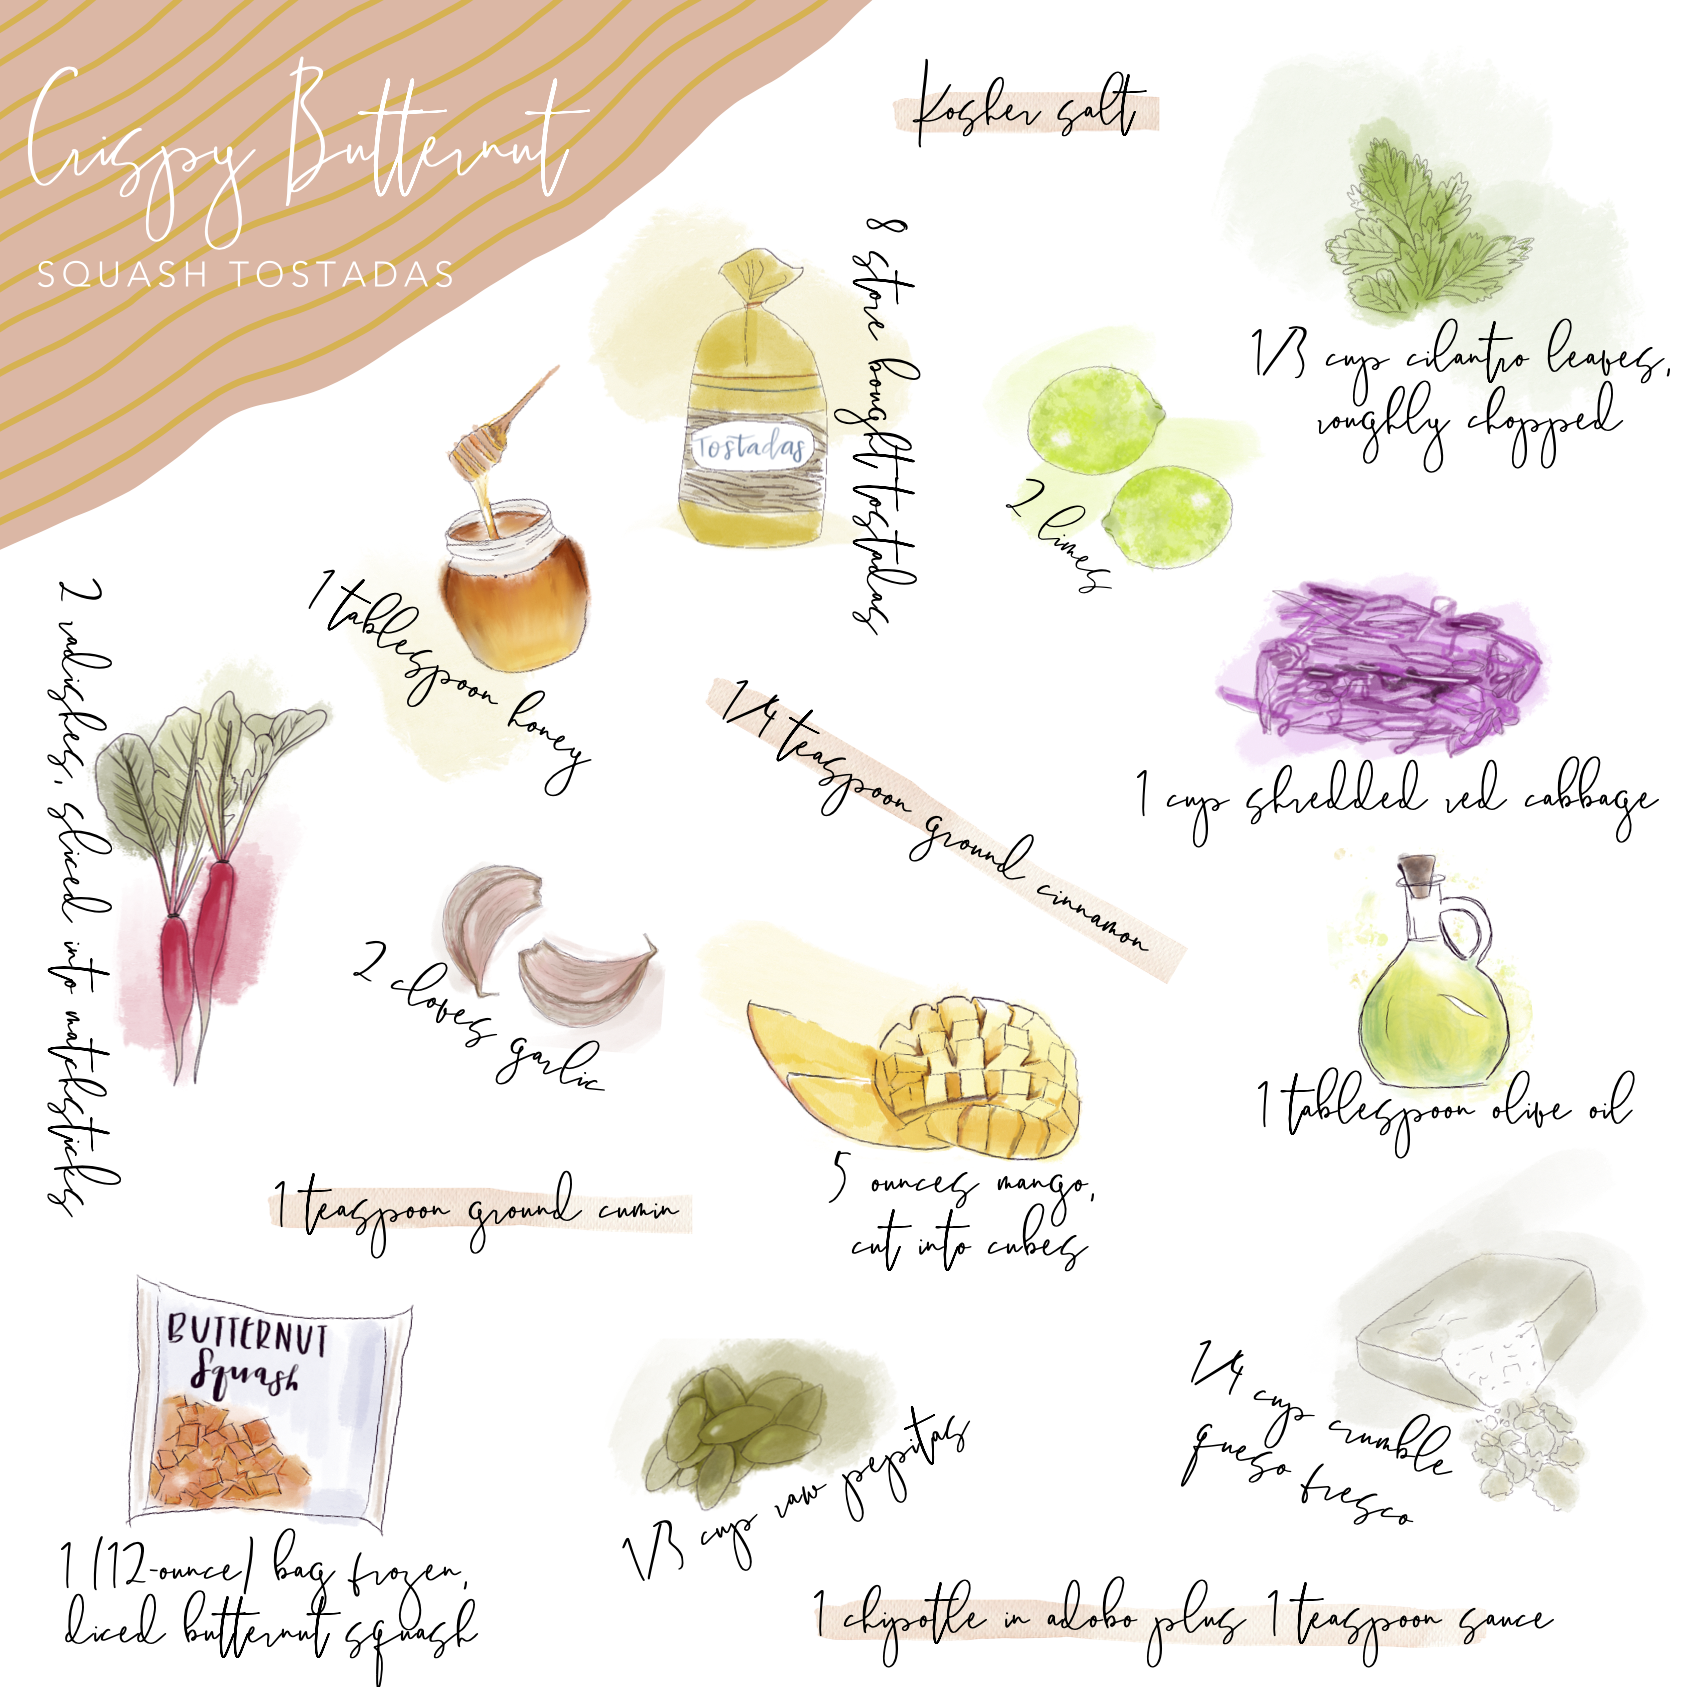 Crispy Butternut
SQUASH TOSTADAS
Kosher salt
1/3 cup cilantro leaves,
roughly chopped
8 store bought tostadas
Tostadas
2 limes
1 tablespoon honey
2 radishes, sliced into matchsticks
1/4 teaspoon ground cinnamon
1 cup shredded red cabbage
2 cloves garlic
5 ounces mango,
cut into cubes
1 tablespoon olive oil
1 teaspoon ground cumin
BUTTERNUT
Squash
1 (12-ounce) bag frozen,
diced butternut squash
1/3 cup raw pepitas
1/4 cup crumble
queso fresco
1 chipotle in adobo plus 1 teaspoon sauce